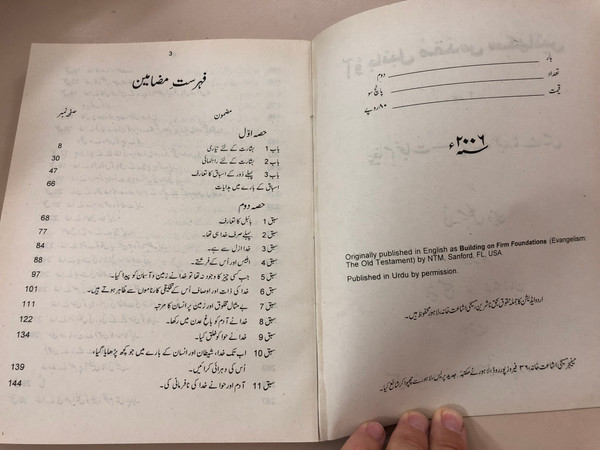 3
فہرستِ مضامین
مضمون صفحہ نمبر
حصہ اوّل
باب 1 بشارت کے لئے تیاری 8
باب 2 بشارت کے لئے راہنمائی 30
باب 3 پہلے دَور کے اسباق کا تعارف 47
اسباق کے بارے میں ہدایات 66
حصہ دوم
سبق 1 بائبل کا تعارف 68
سبق 2 پہلے صرف خدا ہی تھا۔ 77
سبق 3 خدا ازل سے ہے۔ 84
سبق 4 ابلیس اور اُس کے فرشتے۔ 88
سبق 5 جب کسی چیز کا وجود نہ تھا تو خدا نے زمین و آسمان کو پیدا کیا۔ 97
سبق 6 خدا کی ذات اور اوصاف اُس کے تخلیقی کارناموں سے ظاہر ہوتے ہیں۔ 101
سبق 7 بے مثال مخلوق اور زمین پر انسان کا مرتبہ 111
سبق 8 خدا نے آدم کو باغِ عدن میں رکھا۔ 122
سبق 9 خدا نے حوا کو خلق کیا۔ 134
سبق 10 اب تک خدا، شیطان اور انسان کے بارے میں جو کچھ پڑھایا گیا،
اُس کی دہرائی کرائیں۔ 139
سبق 11 آدم اور حوا نے خدا کی نافرمانی کی۔ 144
بار دوم
تعداد پانچ سو
قیمت ۸۰ روپے
۲۰۰۶ء
Originally published in English as Building on Firm Foundations (Evangelism:
The Old Testament) by NTM, Sanford. FL, USA
Published in Urdu by permission.
اردو ایڈیشن کے جملہ حقوق بحق ناشرین مسیحی اشاعت خانہ، لاہور محفوظ ہیں۔
مینیجر مسیحی اشاعت خانہ، ۳۶ فیروز پور روڈ، لاہور نے مکتبہ جدید پریس لاہور سے چھپوا کر شائع کیا۔